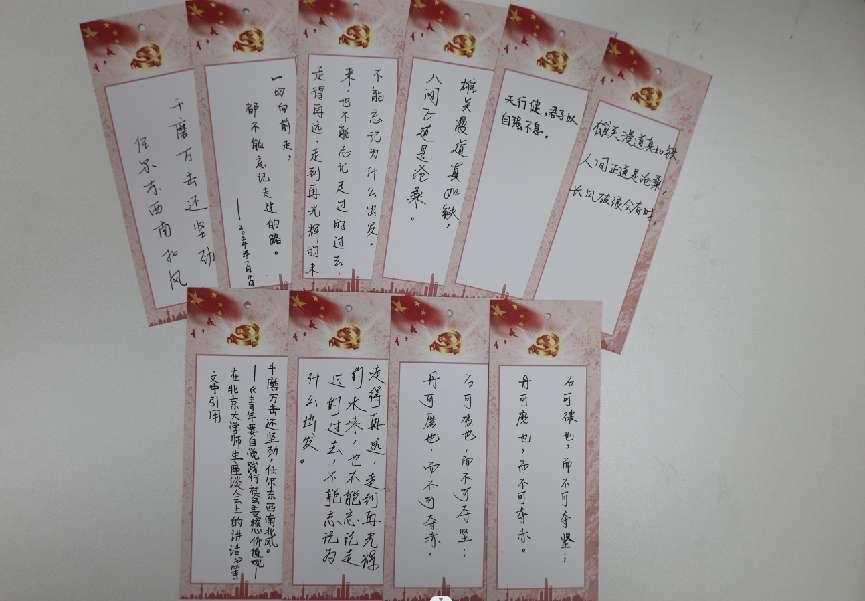 千磨万击还坚劲
任尔东西南北风
一切向前走，
都不能忘记走过的路。
走得再远、走到再光辉的未
来，也不能忘记走过的过去，
不能忘记为什么出发。
雄关漫道真如铁，
人间正道是沧桑。
天行健，君子以
自强不息。
雄关漫道真如铁
人间正道是沧桑，
长风破浪会有时。
千磨万击还坚劲，任尔东西南北风。
——《青年要自觉践行社会主义核心价值观—
在北京大学师生座谈会上的讲话》等
文中引用
走得再远，走到再光辉
的未来，也不能忘记走
过的过去，不能忘记为
什么出发。
石可破也，而不可夺坚；
丹可磨也，而不可夺赤。
石可破也，而不可夺坚；
丹可磨也，而不可夺赤。